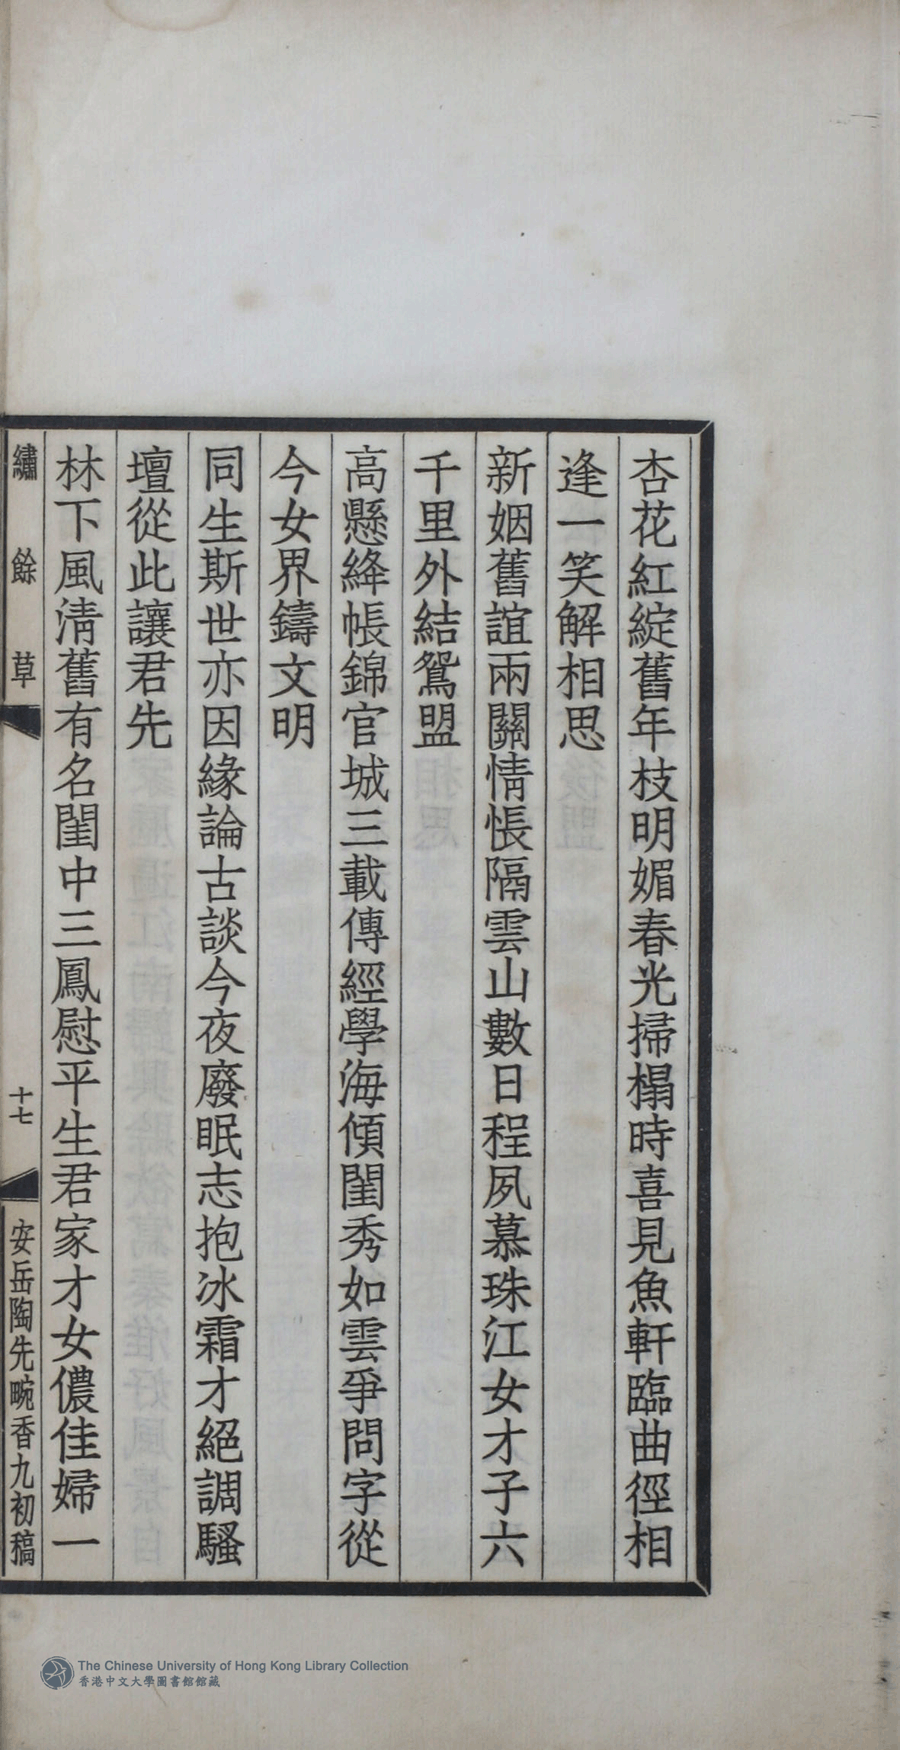 杏花紅綻舊年枝明媚春光掃榻時喜見魚軒臨曲徑相
逢一笑解相思
新姻舊誼兩關情悵隔雲山數日程夙慕珠江女才子六
千里外結鴛盟
高懸絳帳錦官城三載傳經學海傾閨秀如雲爭問字從
今女界鑄文明
同生斯世亦因緣論古談今夜廢眠志抱冰霜才絕調騷
壇從此讓君先
林下風清舊有名閨中三鳳慰平生君家才女儂佳婦一
繡餘草
十七
安岳陶先畹香九初稿
The Chinese University of Hong Kong Library Collection
香港中文大學圖書館館藏